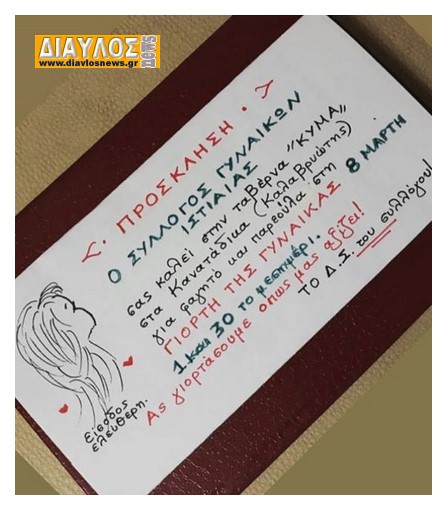 ΔΙΑΥΛΟΣ news
www.diavlosnews.gr
ΠΡΟΣΚΛΗΣΗ
Ο ΣΥΛΛΟΓΟΣ ΓΥΝΑΙΚΩΝ
ΙΣΤΙΑΙΑΣ
σας καλεί στην ταβέρνα "ΚΥΜΑ"
στα Κανατάδικα (Καλαβρυώτης)
για φαγητό και παρεούλα στη
ΓΙΟΡΤΗ ΤΗΣ ΓΥΝΑΙΚΑΣ 8 ΜΑΡΤΗ
1 και 30 το μεσημέρι.
Ας γιορτάσουμε όπως μας αξίζει!
ΤΟ Δ.Σ. του συλλόγου!
Είσοδος
ελεύθερη.